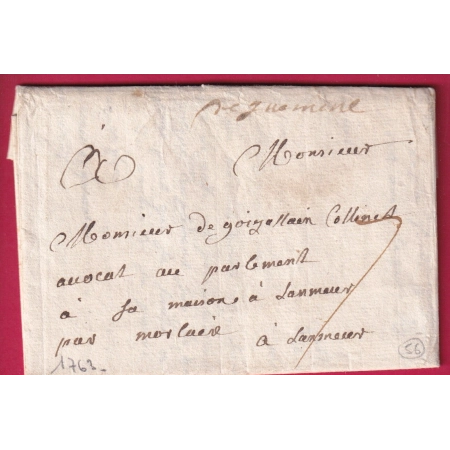 De guemene
A Monsieur
Monsieur de goizallain Collinet
avocat au parlement
à sa maison à Lanmeur
par morlaix à Lanmeur
7
1763
56